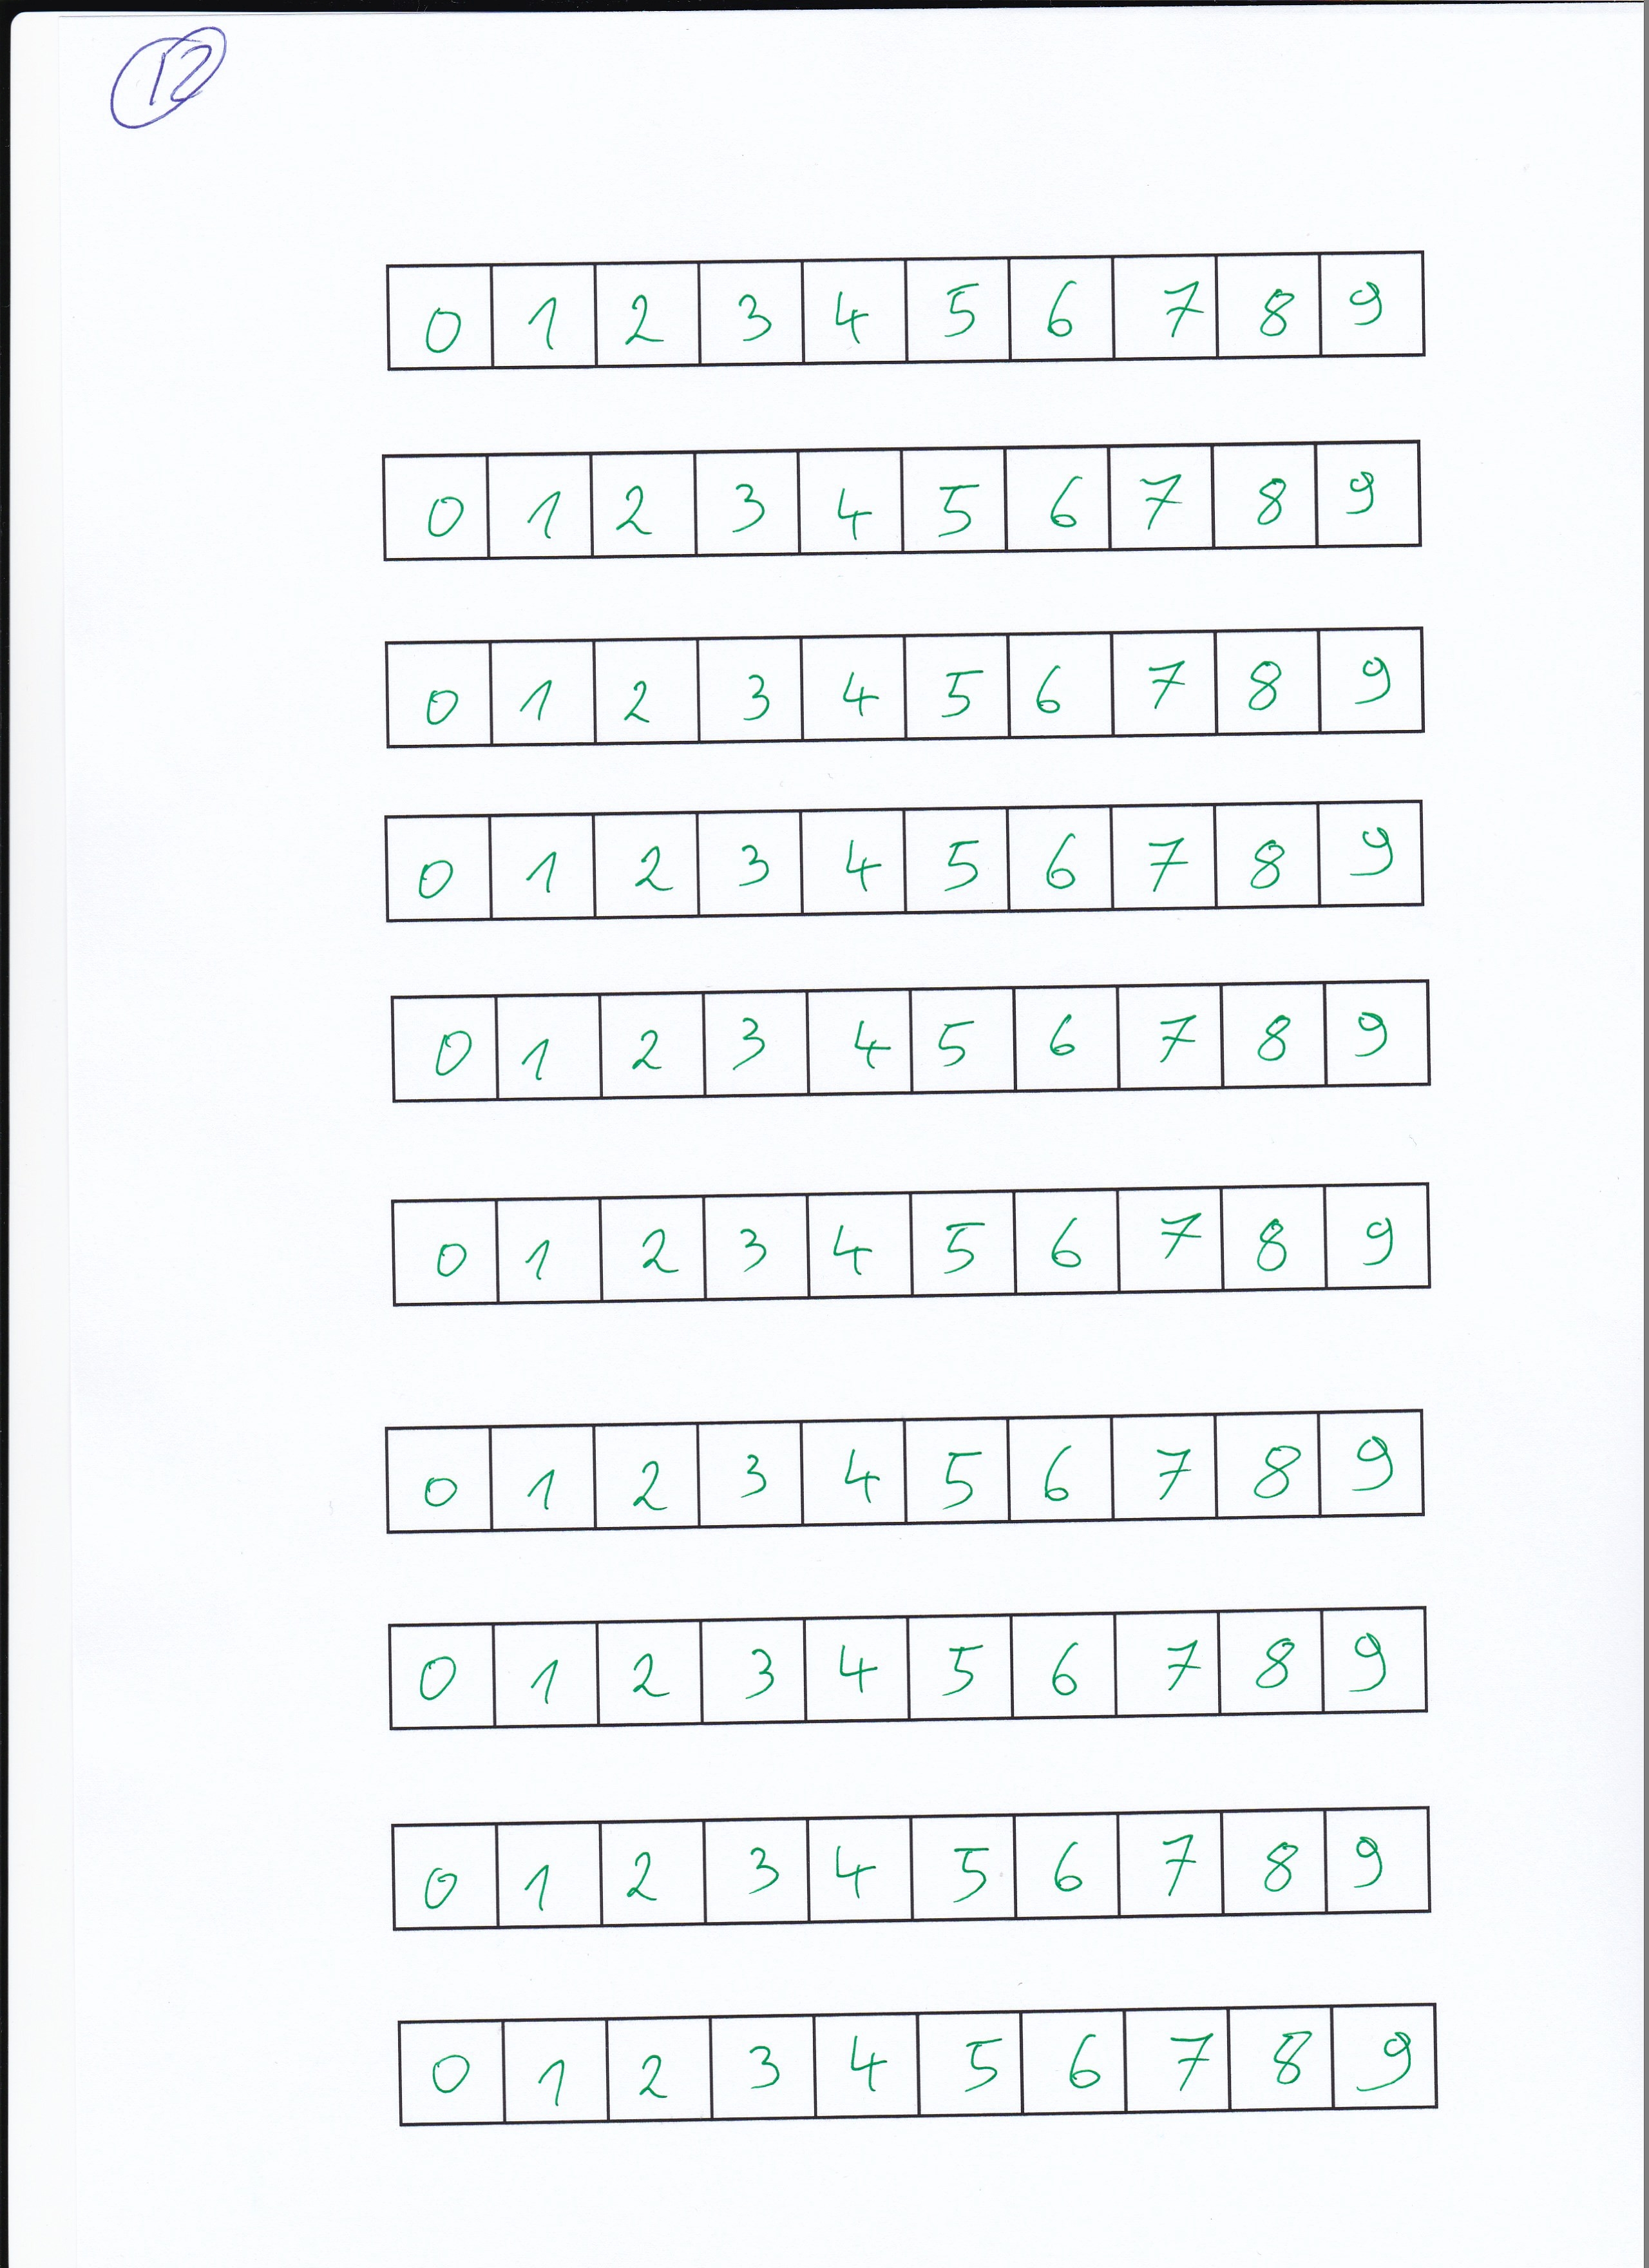 12
0 1 2 3 4 5 6 7 8 9
0 1 2 3 4 5 6 7 8 9
0 1 2 3 4 5 6 7 8 9
0 1 2 3 4 5 6 7 8 9
0 1 2 3 4 5 6 7 8 9
0 1 2 3 4 5 6 7 8 9
0 1 2 3 4 5 6 7 8 9
0 1 2 3 4 5 6 7 8 9
0 1 2 3 4 5 6 7 8 9
0 1 2 3 4 5 6 7 8 9